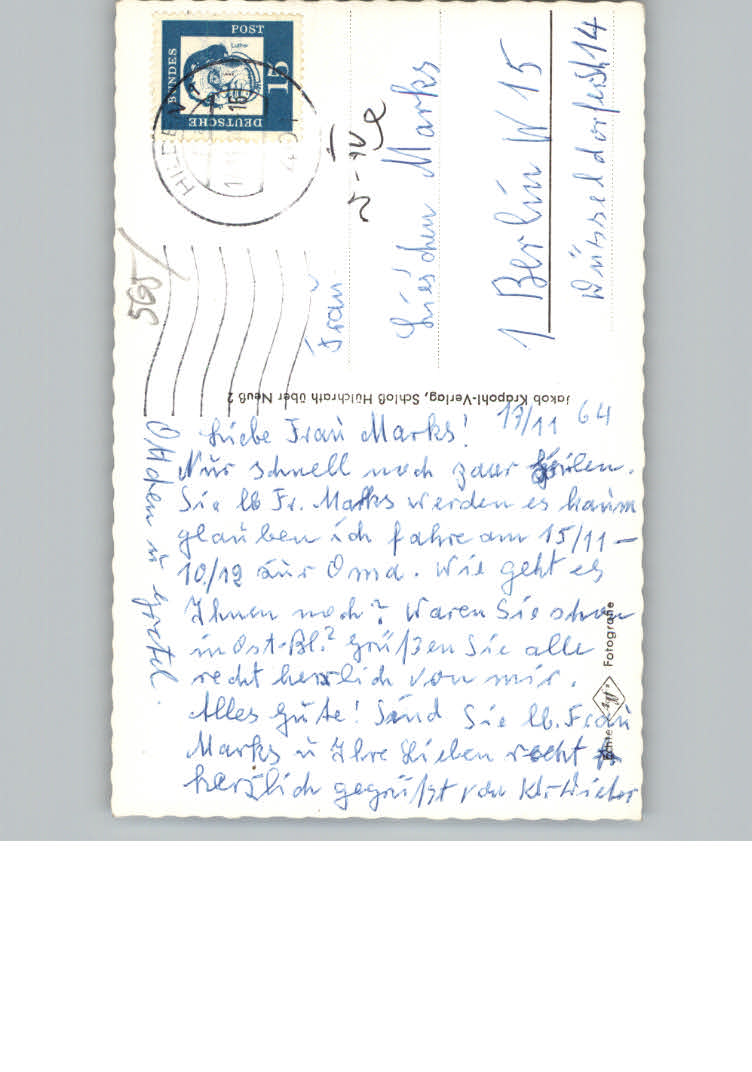 13/11 64
Liebe Frau Marks!
Nur schnell noch paar Zeilen.
Sie lb Fr. Marks werden es kaum
glauben ich fahre am 15/11 –
10/12 zur Oma. Wie geht es
Ihnen noch? Waren Sie schon
in Ost-Bl.? Grüßen Sie alle
recht herzlich von mir.
Alles Gute! Sind Sie lb. Frau
Marks u Ihre Lieben recht
herzlich gegrüßt von
Ottchen u Gretel.
Frau
Lieschen Marks
1 Berlin W 15
Düsseldorferstr 14
565/
DEUTSCHE
BUNDES
POST
15
Luther
Jakob Krapohl-Verlag, Schloß Hülchrath über Neuß 2
Fotografie